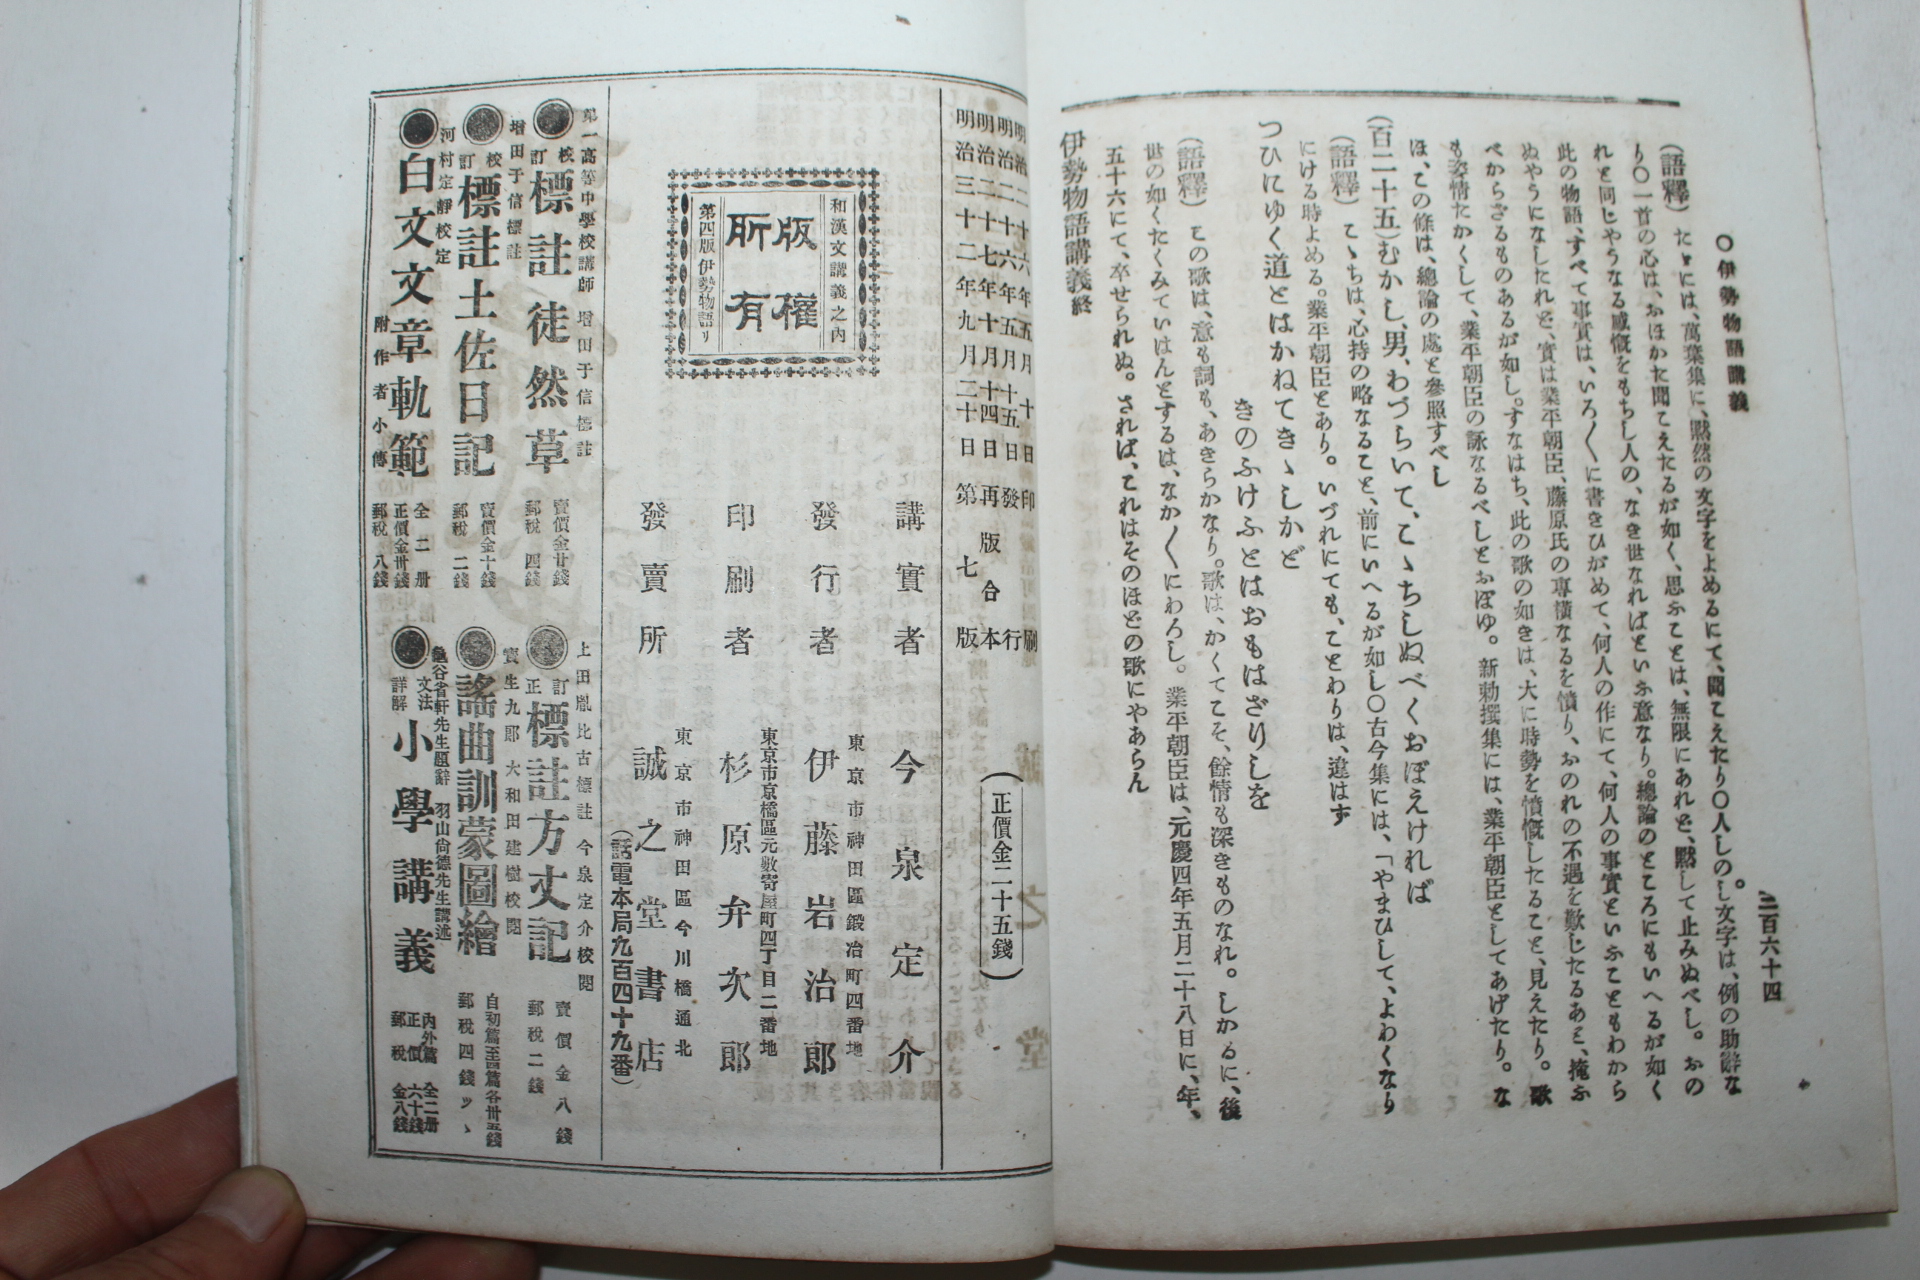 ○伊勢物語講義
三百六十四
(語釋)たゞには、萬葉集に、黙然の文字をよめるにて、聞こえたり○人しのし文字は、例の助辭な
り○一首の心は、おほかた聞こえたるが如く、思ふことは、無限にあれど、黙して止みぬべし。おの
れと同じやうなる感慨をもちし人の、なき世なればといふ意なり。總論のところにもいへるが如く
此の物語、すべて事實は、いろ〱に書きひがめて、何人の作にて、何人の事實といふこともわから
ぬやうになしたれど、實は業平朝臣、藤原氏の專横なるを憤り、おのれの不遇を歎じたるあと、掩ふ
べからざるものあるが如し。すなはち、此の歌の如きは、大に時勢を憤慨したること、見えたり。歌
も姿情たかくして、業平朝臣の詠なるべしとおぼゆ。新勅撰集には、業平朝臣としてあげたり。な
ほ、この條は、總論の處と參照すべし
(百二十五)むかし、男、わづらいて、こゝちしぬべくおぼえければ
(語釋)こゝちは、心持の略なること、前にいへるが如し○古今集には、「やまひして、よわくなり
にける時よめる。業平朝臣とあり。いづれにても、ことわりは、違はず
つひにゆく道とはかねてきゝしかど
きのふけふとはおもはざりしを
(語釋)この歌は、意も詞も、あきらかなり。歌は、かくてこそ、餘情も深きものなれ。しかるに、後
世の如くたくみていはんとするは、なか〱にわろし。業平朝臣は、元慶四年五月二十八日に、年、
五十六にて、卒せられぬ。されば、これはそのほどの歌にやあらん
伊勢物語講義終
明治二十六年五月十日印刷
明治二十六年五月十五日發行
明治二十七年十月十四日再版合本
明治三十二年九月二十日第七版
(正價金二十五錢)
和漢文講義之內
版權
所有
第四版伊勢物語リ
講實者 今泉定介
東京市神田區鍛冶町四番地
發行者 伊藤岩治郎
東京市京橋區元數寄屋町四丁目二番地
印刷者 杉原弁次郎
東京市神田區今川橋通北
發賣所 誠之堂書店
(話電本局九百四十九番)
第一高等中學校講師 增田于信標註
校訂 標註徒然草 賣價金廿錢 郵稅四錢
增田于信標註
校訂 標註土佐日記 賣價金十錢 郵稅二錢
河村定靜校定
白文文章軌範 附作者小傳 全二册 正價金卅錢 郵稅八錢
上田胤比古標註 今泉定介校閱
訂正 標註方丈記 賣價金八錢 郵稅二錢
寶生九郎 大和田建樹校閱
謠曲訓蒙圖繪 自初篇至五篇各卅五錢 郵稅四錢ツゝ
龜谷省軒先生題辭 羽山尙德先生講述
文法詳解 小學講義 內外篇 全二册 正價六十錢 郵稅金八錢